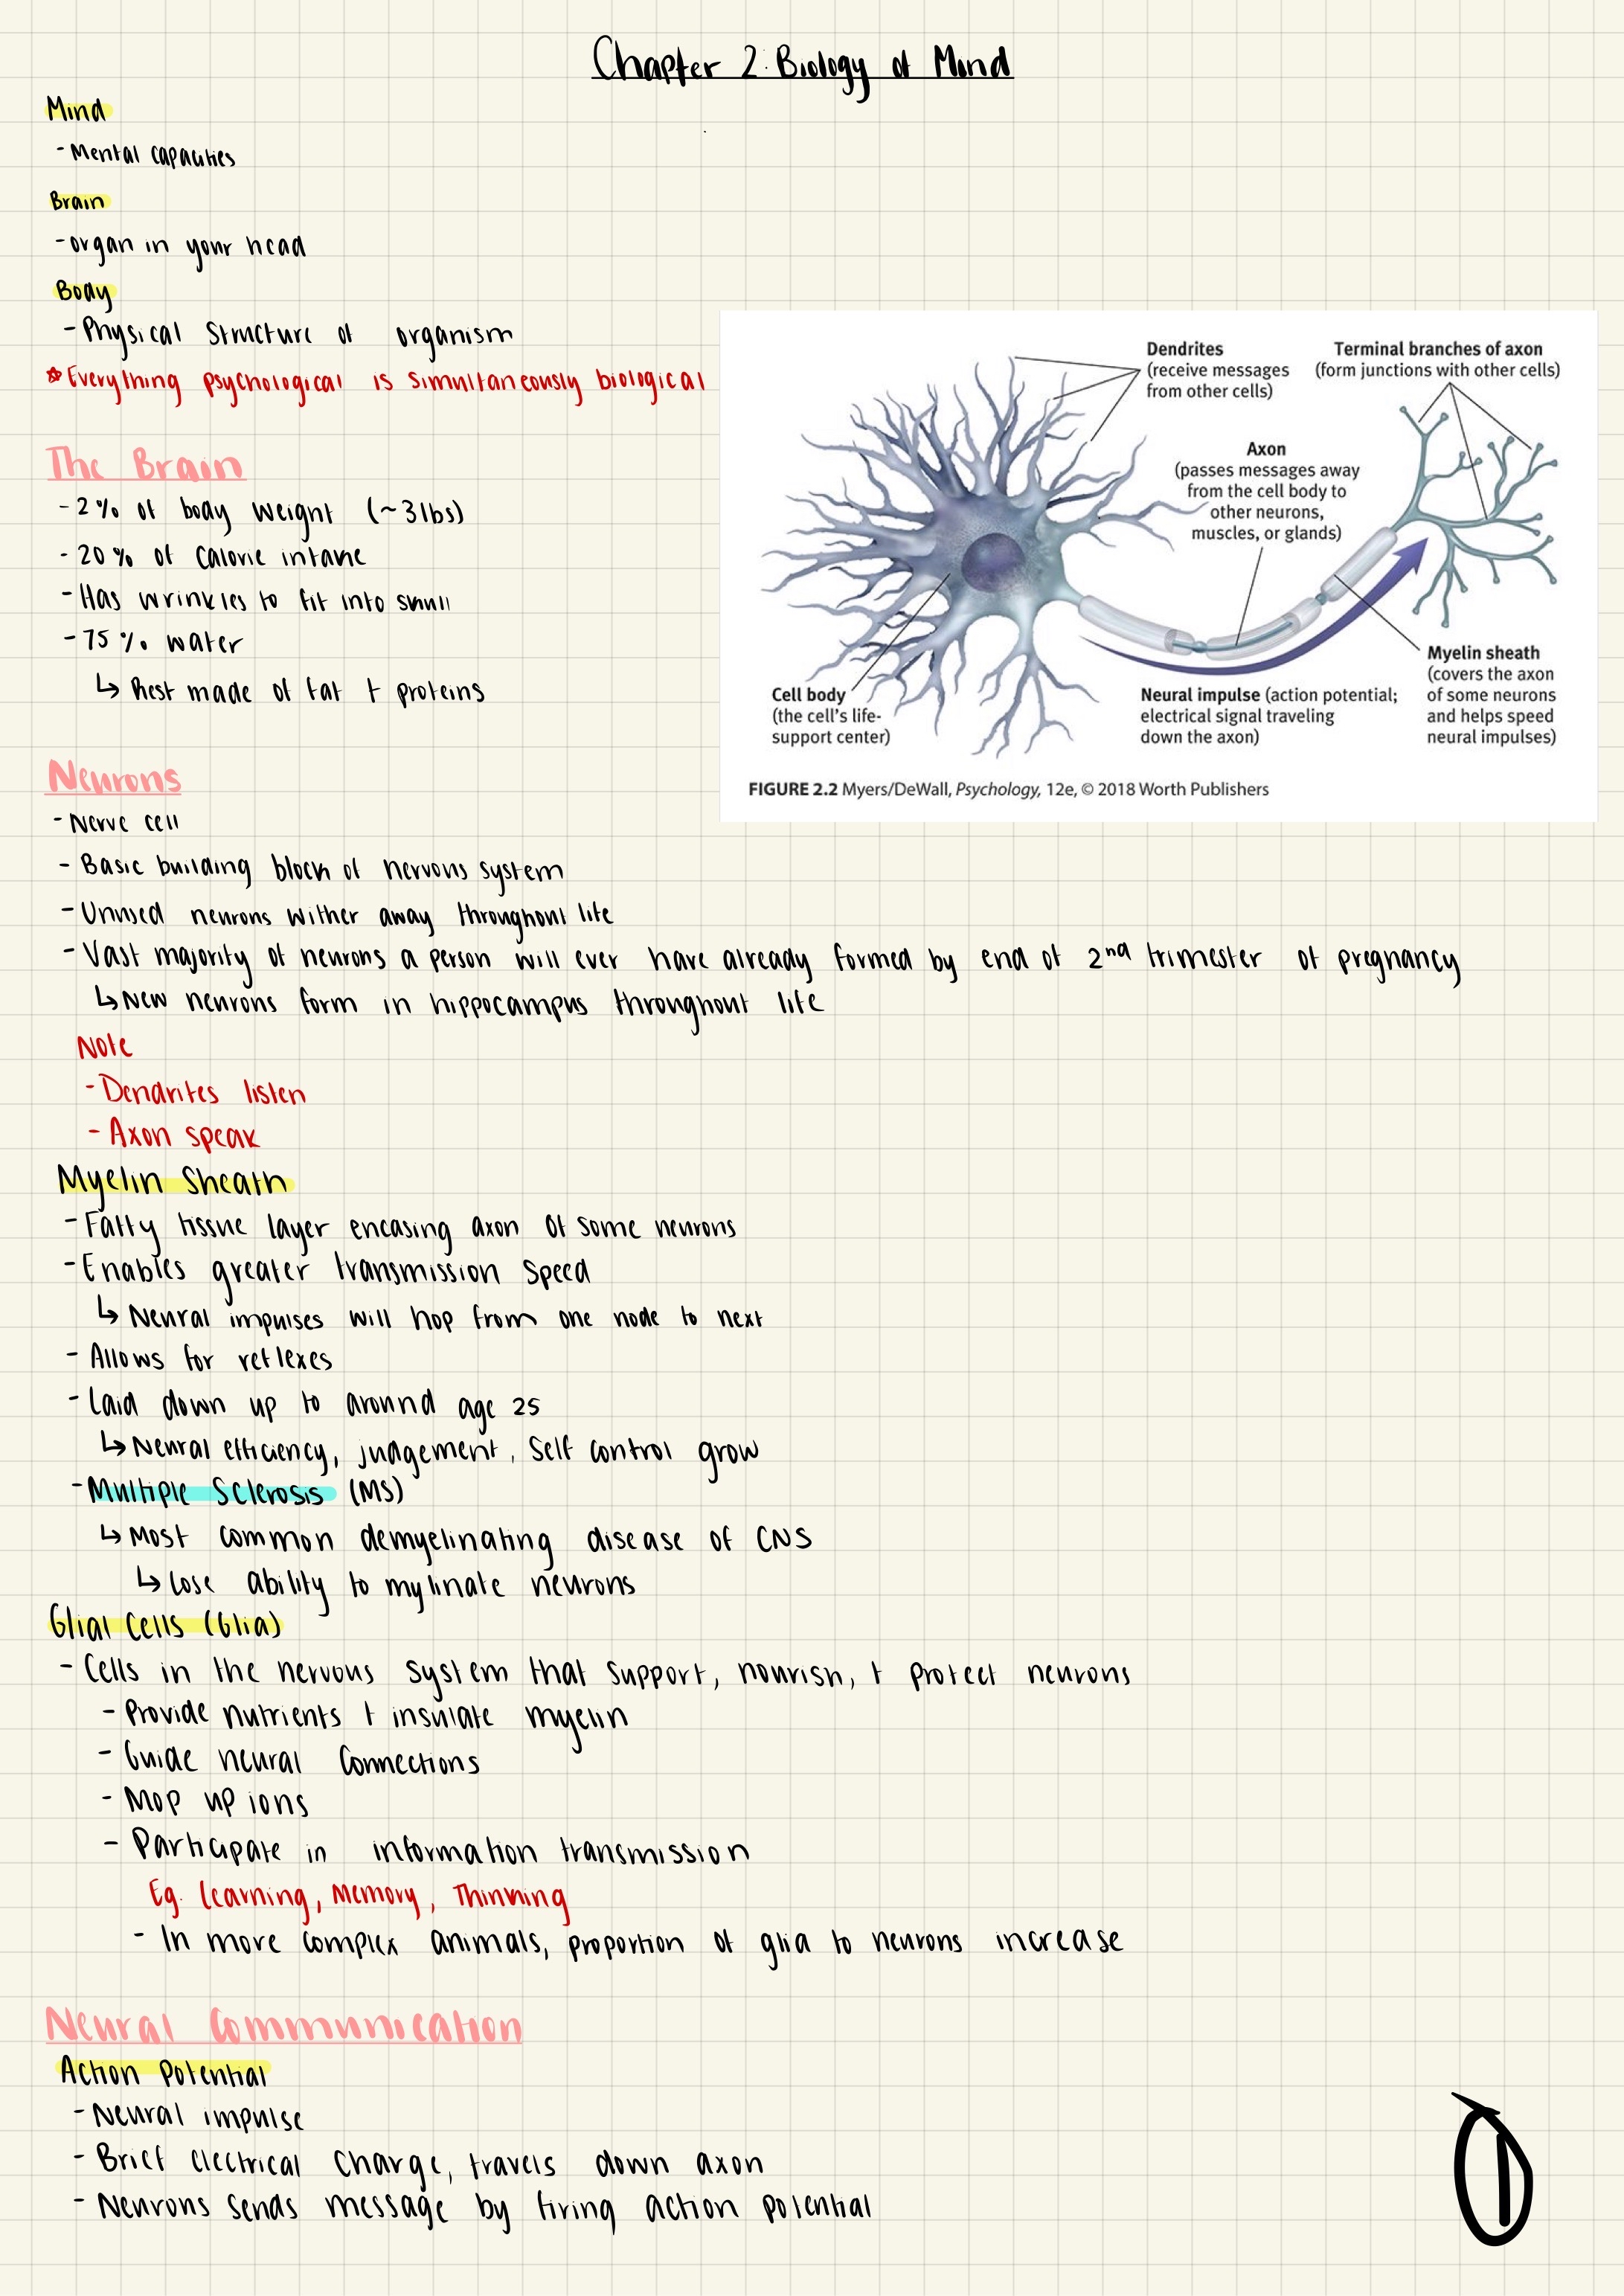 Chapter 2: Biology of Mind
Mind
- Mental capacities
Brain
- organ in your head
Body
- Physical Structure of organism
* Everything psychological is simultaneously biological
The Brain
- 2% of body weight (~3lbs)
- 20% of calorie intake
- Has wrinkles to fit into skull
- 75% water
↳ Rest made of fat + proteins
Dendrites
(receive messages
from other cells)
Terminal branches of axon
(form junctions with other cells)
Axon
(passes messages away
from the cell body to
other neurons,
muscles, or glands)
Cell body
(the cell's life-
support center)
Neural impulse (action potential;
electrical signal traveling
down the axon)
Myelin sheath
(covers the axon
of some neurons
and helps speed
neural impulses)
FIGURE 2.2 Myers/DeWall, Psychology, 12e, © 2018 Worth Publishers
Neurons
- Nerve cell
- Basic building block of nervous system
- Unused neurons wither away throughout life
- Vast majority of neurons a person will ever have already formed by end of 2nd trimester of pregnancy
↳ New neurons form in hippocampus throughout life
Note
- Dendrites listen
- Axon speak
Myelin Sheath
- Fatty tissue layer encasing axon of some neurons
- Enables greater transmission speed
↳ Neural impulses will hop from one node to next
- Allows for reflexes
- Laid down up to around age 25
↳ Neural efficiency, judgement, self control grow
- Multiple Sclerosis (MS)
↳ Most common demyelinating disease of CNS
↳ Lose ability to mylinate neurons
Glial Cells (Glia)
- Cells in the nervous system that support, nourish, + protect neurons
- Provide nutrients + insulate myelin
- Guide neural connections
- Mop up ions
- Participate in information transmission
Eg. Learning, Memory, Thinking
- In more complex animals, proportion of glia to neurons increase
Neural Communication
Action Potential
- Neural impulse
- Brief electrical charge, travels down axon
- Neurons sends message by firing action potential
1